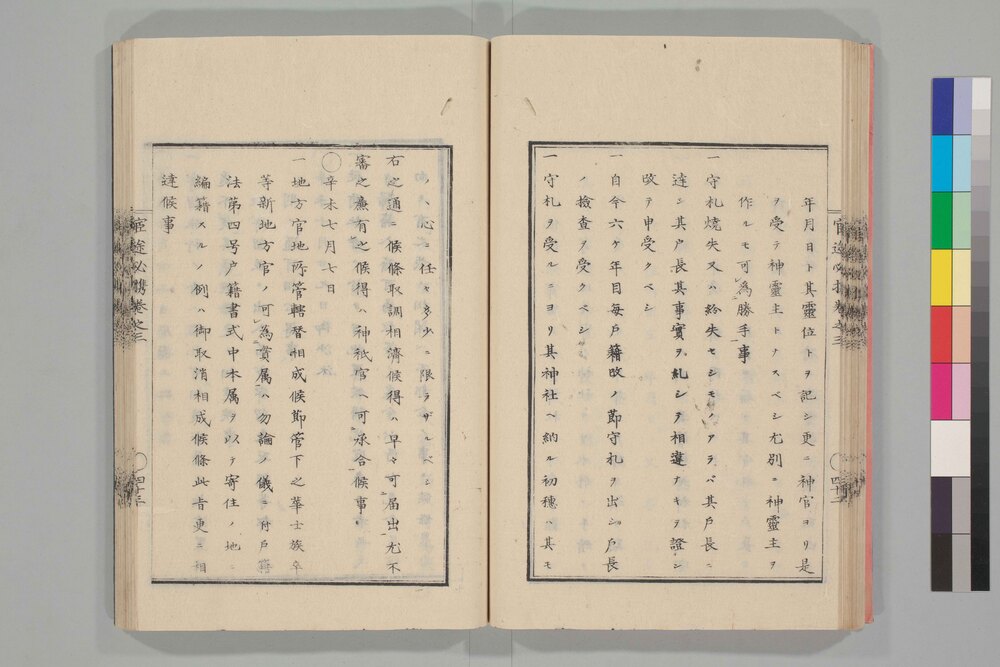 年月日ト其靈位トヲ記シ更ニ神官ヨリ是
ヲ受テ神靈主トナスベシ尤別ニ神靈主ヲ
作ルモ可為勝手事
一守札焼失又ハ紛失セシモノアラバ其戸長ニ
達シ其戸長其事實ヲ糺シテ相違ナキヲ證シ
改テ申受クベシ
一自今六ケ年目毎戸籍改ノ節守札ヲ出シ戸長
ノ檢查ヲ受クベシ
一守札ヲ受ルニヨリ其神社ヘ納ル初穂ハ其モ
ノヽ心ニ任セ多少ニ限ラザルベシ
右之通ニ候條取調相濟候得ハ早々可届出尤不
審之廉有之候得ハ神祇官ヘ可承合候事
○辛未七月七日
一地方官地所管轄替相成候節管下之華士族卒
等新地方官ノ可為貫属ハ勿論ノ儀ニ付戸籍
法第四号戸籍書式中本属ヲ以テ寄住ノ地ニ
編籍スルノ例ハ御取消相成候條此旨更ニ相
達候事